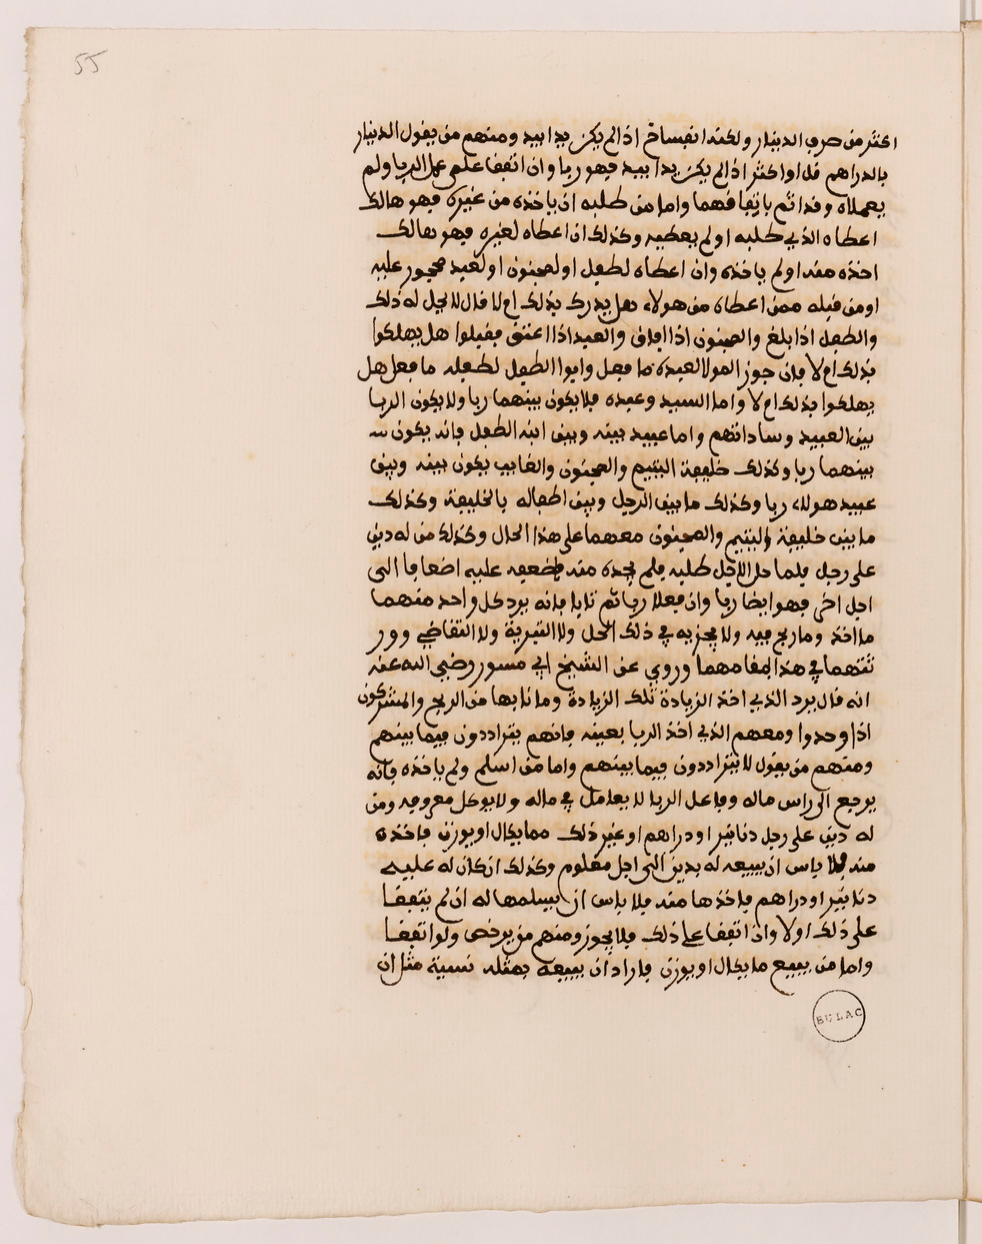 55
اكثر من صرف الدينار ولكنه انفساخ اذا لم يكن يدا بيد ومنهم من يقول الدينار
بالدراهم قل او اكثر اذا لم يكن يدا بيد فهو ربا وان اتفقا على عمل الربا ولم
يعملاه وقد اثم باتفاقهما واما من طلبه ان ياخذه من غيره فهو هالك
اعطاه الذي طلبه او لم يعطيه وكذلك ان اعطاه لغيره فهو هالك
اخذه منه او لم ياخذه وان اعطاه لطفل او لمجنون او لعبد محجور عليه
او من قبله ممن اعطاه من هولاء هل يدرك بذلك ام لا قال لا يحل له ذلك
والطفل اذا بلغ والمجنون اذا افاق والعبد اذا اعتق فقبلوا هل يهلكوا
بذلك ام لا فان جوز المولا لعبده ما فعل وابوا الطفل لطفله ما فعل هل
يهلكوا بذلك ام لا واما السيد وعبده فلا يكون بينهما ربا ولا يكون الربا
بين العبيد وساداتهم واما عبيد بينه وبين ابنه الطفل فانه يكون
بينهما ربا وكذلك خليفة اليتيم والمجنون والغايب يكون بينه وبين
عبيد هولاء ربا وكذلك ما بين الرجل وبين اطفاله بالخليفة وكذلك
ما بين خليفة اليتيم والمجنون معهما على هذا الحال وكذلك من له دين
على رجل فلما حل الاجل طلبه فلم يجده منه فضعفه عليه اضعافا الى
اجل اخر فهو ايضا ربا وان فعلا ربا ثم تابا فانه يرد كل واحد منهما
ما اخذ وما ربح فيه ولا يجزيه في ذلك الحل ولا التبرية ولا التقاضي وور
ثتهما في هذا المقامهما وروي عن الشيخ ابي مسور رضي الله عنه
انه قال يرد الذي اخذ الزيادة تلك الزيادة وما نابها من الربح والمشركون
اذا وحدوا ومعهم الذي اخذ الربا بعينه فانهم يترادون فيما بينهم
ومنهم من يقول لا يترادون فيما بينهم واما من اسلم ولم ياخذه فانه
يرجع الى راس ماله وفاعل الربا لا يعامل في ماله ولا يوكل معروفه ومن
له دين على رجل دنانير او دراهم او غير ذلك مما يكال او يوزن فاخذه
منه فلا باس ان يبيعه له بدين الى اجل معلوم وكذلك ان كان له عليه
دنانير او دراهم فاخذها منه فلا باس ان يسلمها له ان لم يتفقا
على ذلك اولا وان اتفقا على ذلك فلا يجوز ومنهم من يرخص ولو اتفقا
واما من يبيع ما يكال او يوزن فاراد ان يبيعه بمثله نسية مثل ان
BULAC